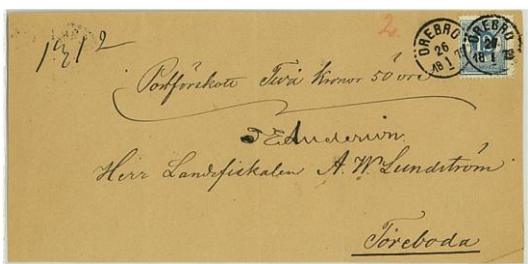 2.
1312
ÖREBRO
26
18 1 79
ÖREBRO
26
18 1
12
Postförskott Två Kronor 50 öre
Herr Landsfiskalen A. W. Lundström
Töreboda